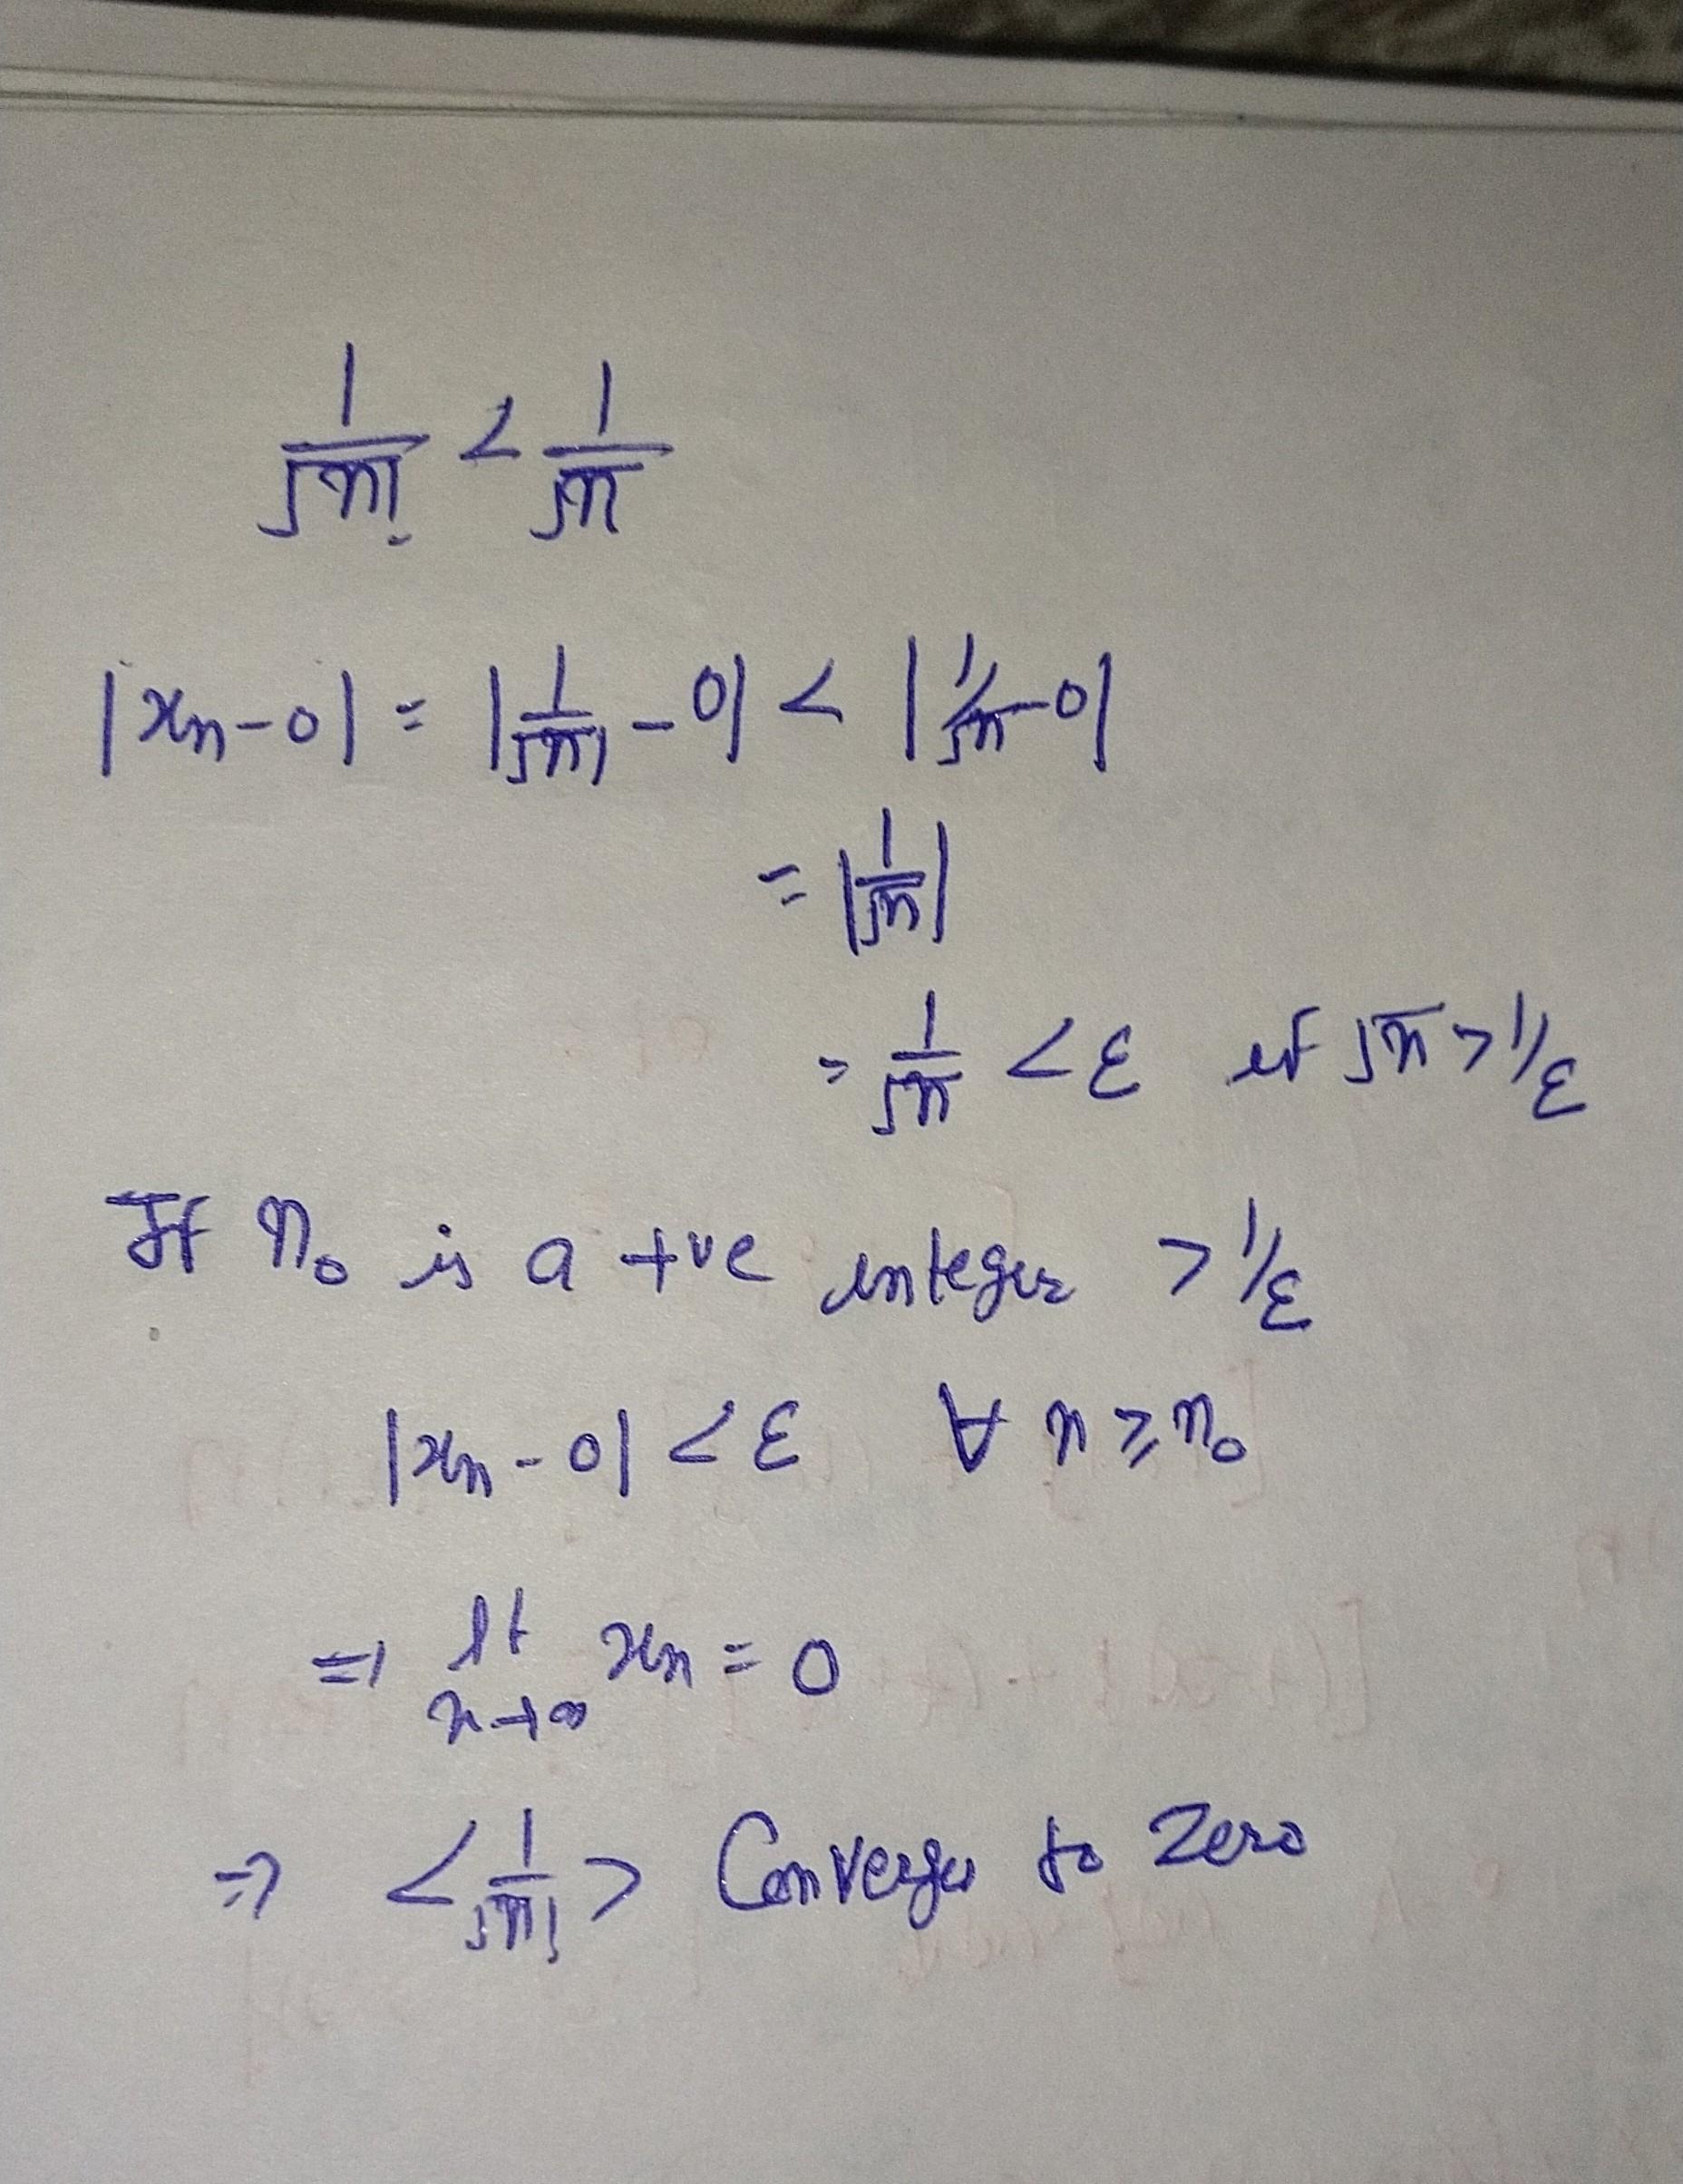 1/√n! < 1/√n
|xn - 0| = |1/√n! - 0| < |1/√n - 0|
= |1/√n|
= 1/√n < ε if √n > 1/ε
If n₀ is a +ve integer > 1/ε
|xn - 0| < ε ∀ n ≥ n₀
⇒ lt n→∞ xn = 0
⇒ <1/√n!> Converges to Zero